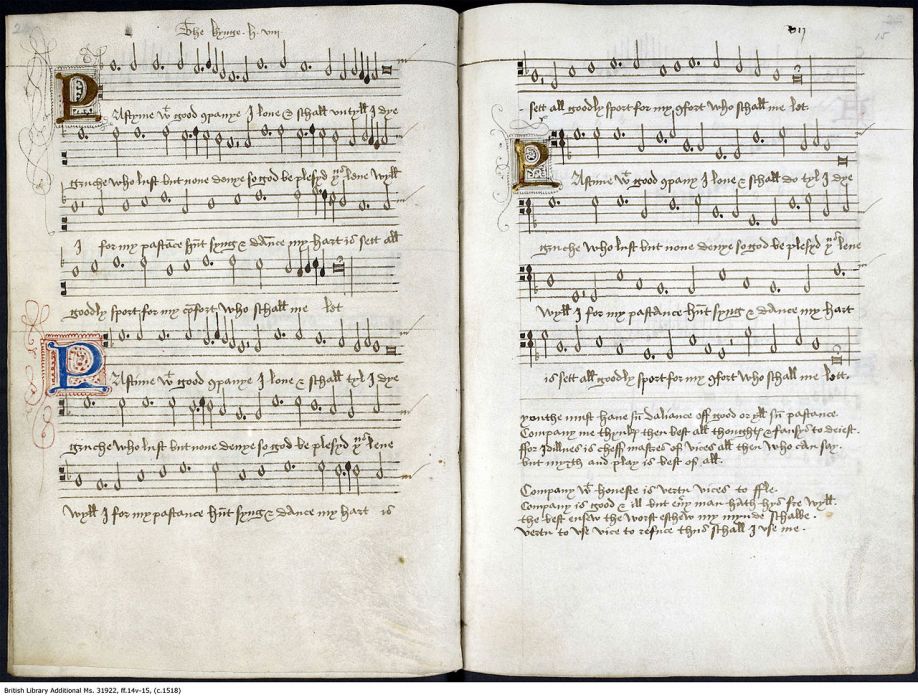 The kynge .h. viii
PAstyme wt good 9panye I love & schall untyll I dye
gruche who lust but none denye so god be plesyd yus leve wyll
I for my pastace hūt syng & dāce my hart is sett all
goodly sport for my cōfort who schall me let
PAstime wt good 9panye I love & schall tyl I dye
gruche who lust but none denye so god be plesyd yus leve
wyll I for my pastance hūt syng & dance my hart is
15
sett all goodly sport for my 9fort who schall me let
PAstime wt good 9pany I love & schall do tyl I dye
gruche who lust but none denye so god be plesyd yus leve
wyll I for my pastance hūt syng & dance my hart
is sett all goodly sport for my 9fort who schall me lett.
youthe must have sū daliance off good or yll sū pastance.
Company me thynkes then best all thoughtes & fansys to deiest.
ffor Idillnes is cheff mastres of vices all then who can say.
but myrth and play is best of all.
Company wt honeste is vertu vices to ffle.
Company is good & ill but evy man hath hys fre wyll.
the best ensew the worst eschew my mynde schalbe.
vertu to use vice to refuce thus schall I use me.
British Library Additional Ms. 31922, ff.14v-15, (c.1518)